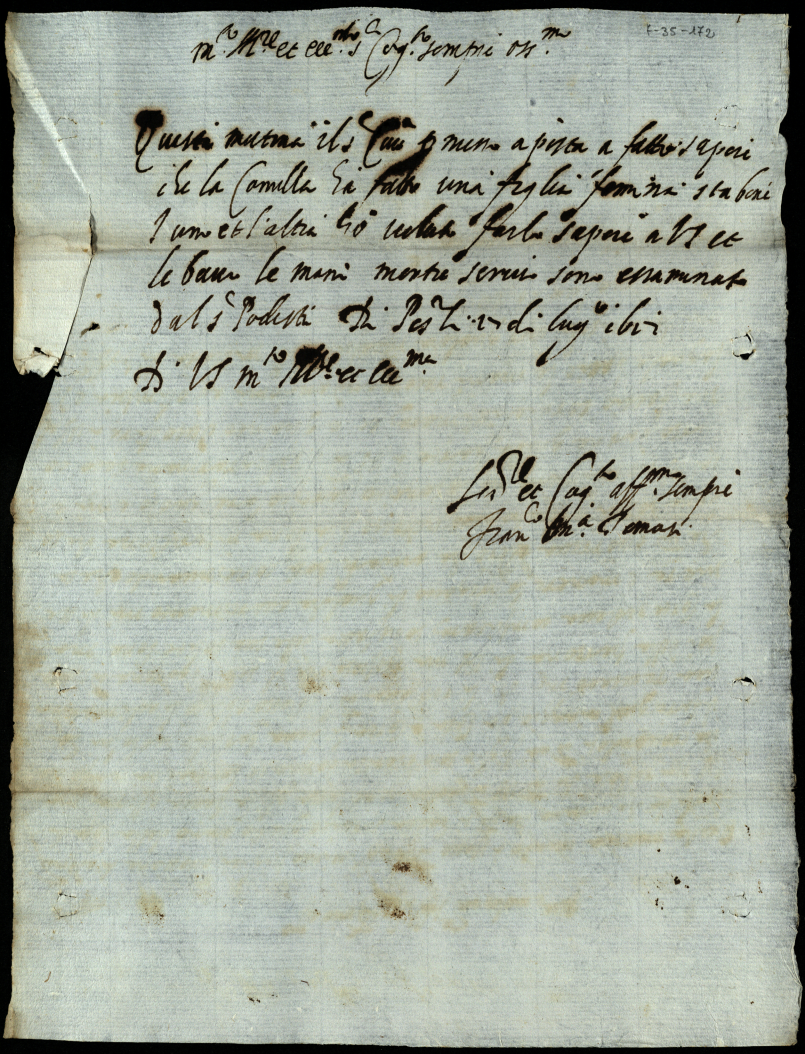 F-35-172
m.to Ill.re et ecc.mo s.r Cog.to sempre oss.mo
Questa matina il s.r p messo a posta a fatto sapere
che la Comilla hà fatto una figlia femina sta bene
l uno et l'altra hò voluto farlo sapere a VS et
le bacio le mani mentre servir sono essaminato
dal s.r Podestà Di li di lug.o
Di VS m.to Ill.re et ecc.ma
Ser.re et Cog.to aff.mo sempre
Fran.co M.a